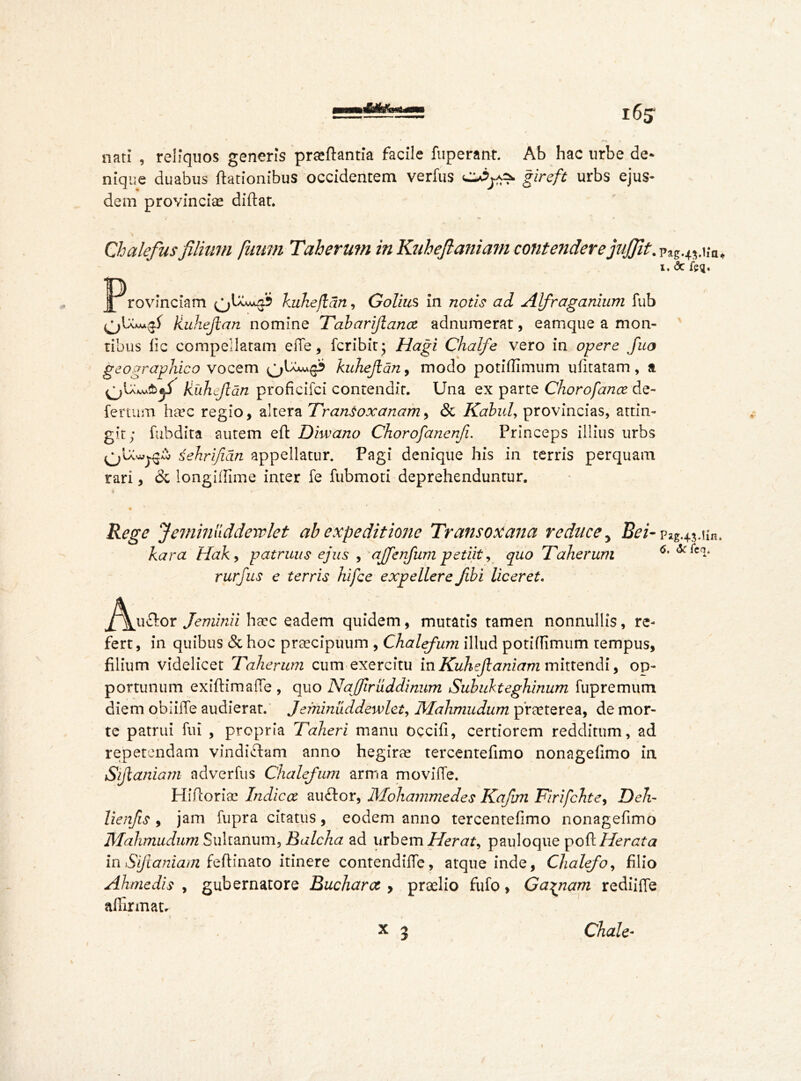 165
nati , reliquos generis præſtantia facile ſuperant. Ab hac urbe de-
nique duabus ſtationibus occidentem verſus gireſt urbs ejus-
dem provinciæ diſtat.
Chalefus filium ſuum Taherum in Kuheſtaniam contendere juſſit. Pag.43.lin.
1. & ſeq.
Provinciam قهستان kuheſtān, Golius in notis ad Alfraganium ſub
كهستان Kuheſtan nomine Tabariſtanæ adnumerat, eamque a mon-
tibus ſic compellatam eſſe, ſcribit; Hagi Chalfe vero in opere ſuo
geographico vocem قهستان kuheſtān, modo potiſſimum uſitatam, a
كوهستان kūheſtān proficiſci contendit. Una ex parte Choroſanæ de-
ſertum hæc regio, altera Transoxanam, & Kabul, provincias, attin-
git; ſubdita autem eſt Diwano Choroſanenſi. Princeps illius urbs
شهرستان šehriſtān appellatur. Pagi denique his in terris perquam
rari, & longiſſime inter ſe ſubmoti deprehenduntur.
Rege Jeminüddewlet ab expeditione Transoxana reduce, Bei- Pag.43.lin.
kara Hak, patruus ejus , aſſenſum petiit, quo Taherum 6. & ſeq.
rurſus e terris hiſce expellere ſibi liceret.
Auctor Jeminii hæc eadem quidem, mutatis tamen nonnullis, re-
fert, in quibus & hoc præcipuum , Chalefum illud potiſſimum tempus,
filium videlicet Taherum cum exercitu in Kuheſtaniam mittendi, op-
portunum exiſtimaſſe , quo Naſſirüddinum Subukteghinum ſupremum
diem obiiſſe audierat. Jeminüddewlet, Mahmudum præterea, de mor-
te patrui ſui , propria Taheri manu occiſi, certiorem redditum, ad
repetendam vindictam anno hegiræ tercenteſimo nonageſimo in
Siſtaniam adverſus Chalefum arma moviſſe.
Hiſtoriæ Indicæ auctor, Mohammedes Kaſim Firiſchte, Deh-
lienſis , jam ſupra citatus, eodem anno tercenteſimo nonageſimo
Mahmudum Sultanum, Balcha ad urbem Herat, pauloque poſt Herata
in Siſtaniam feſtinato itinere contendiſſe, atque inde, Chalefo, filio
Ahmedis , gubernatore Bucharæ , prælio fuſo, Gaznam rediiſſe
affirmat.
x 3 Chale-